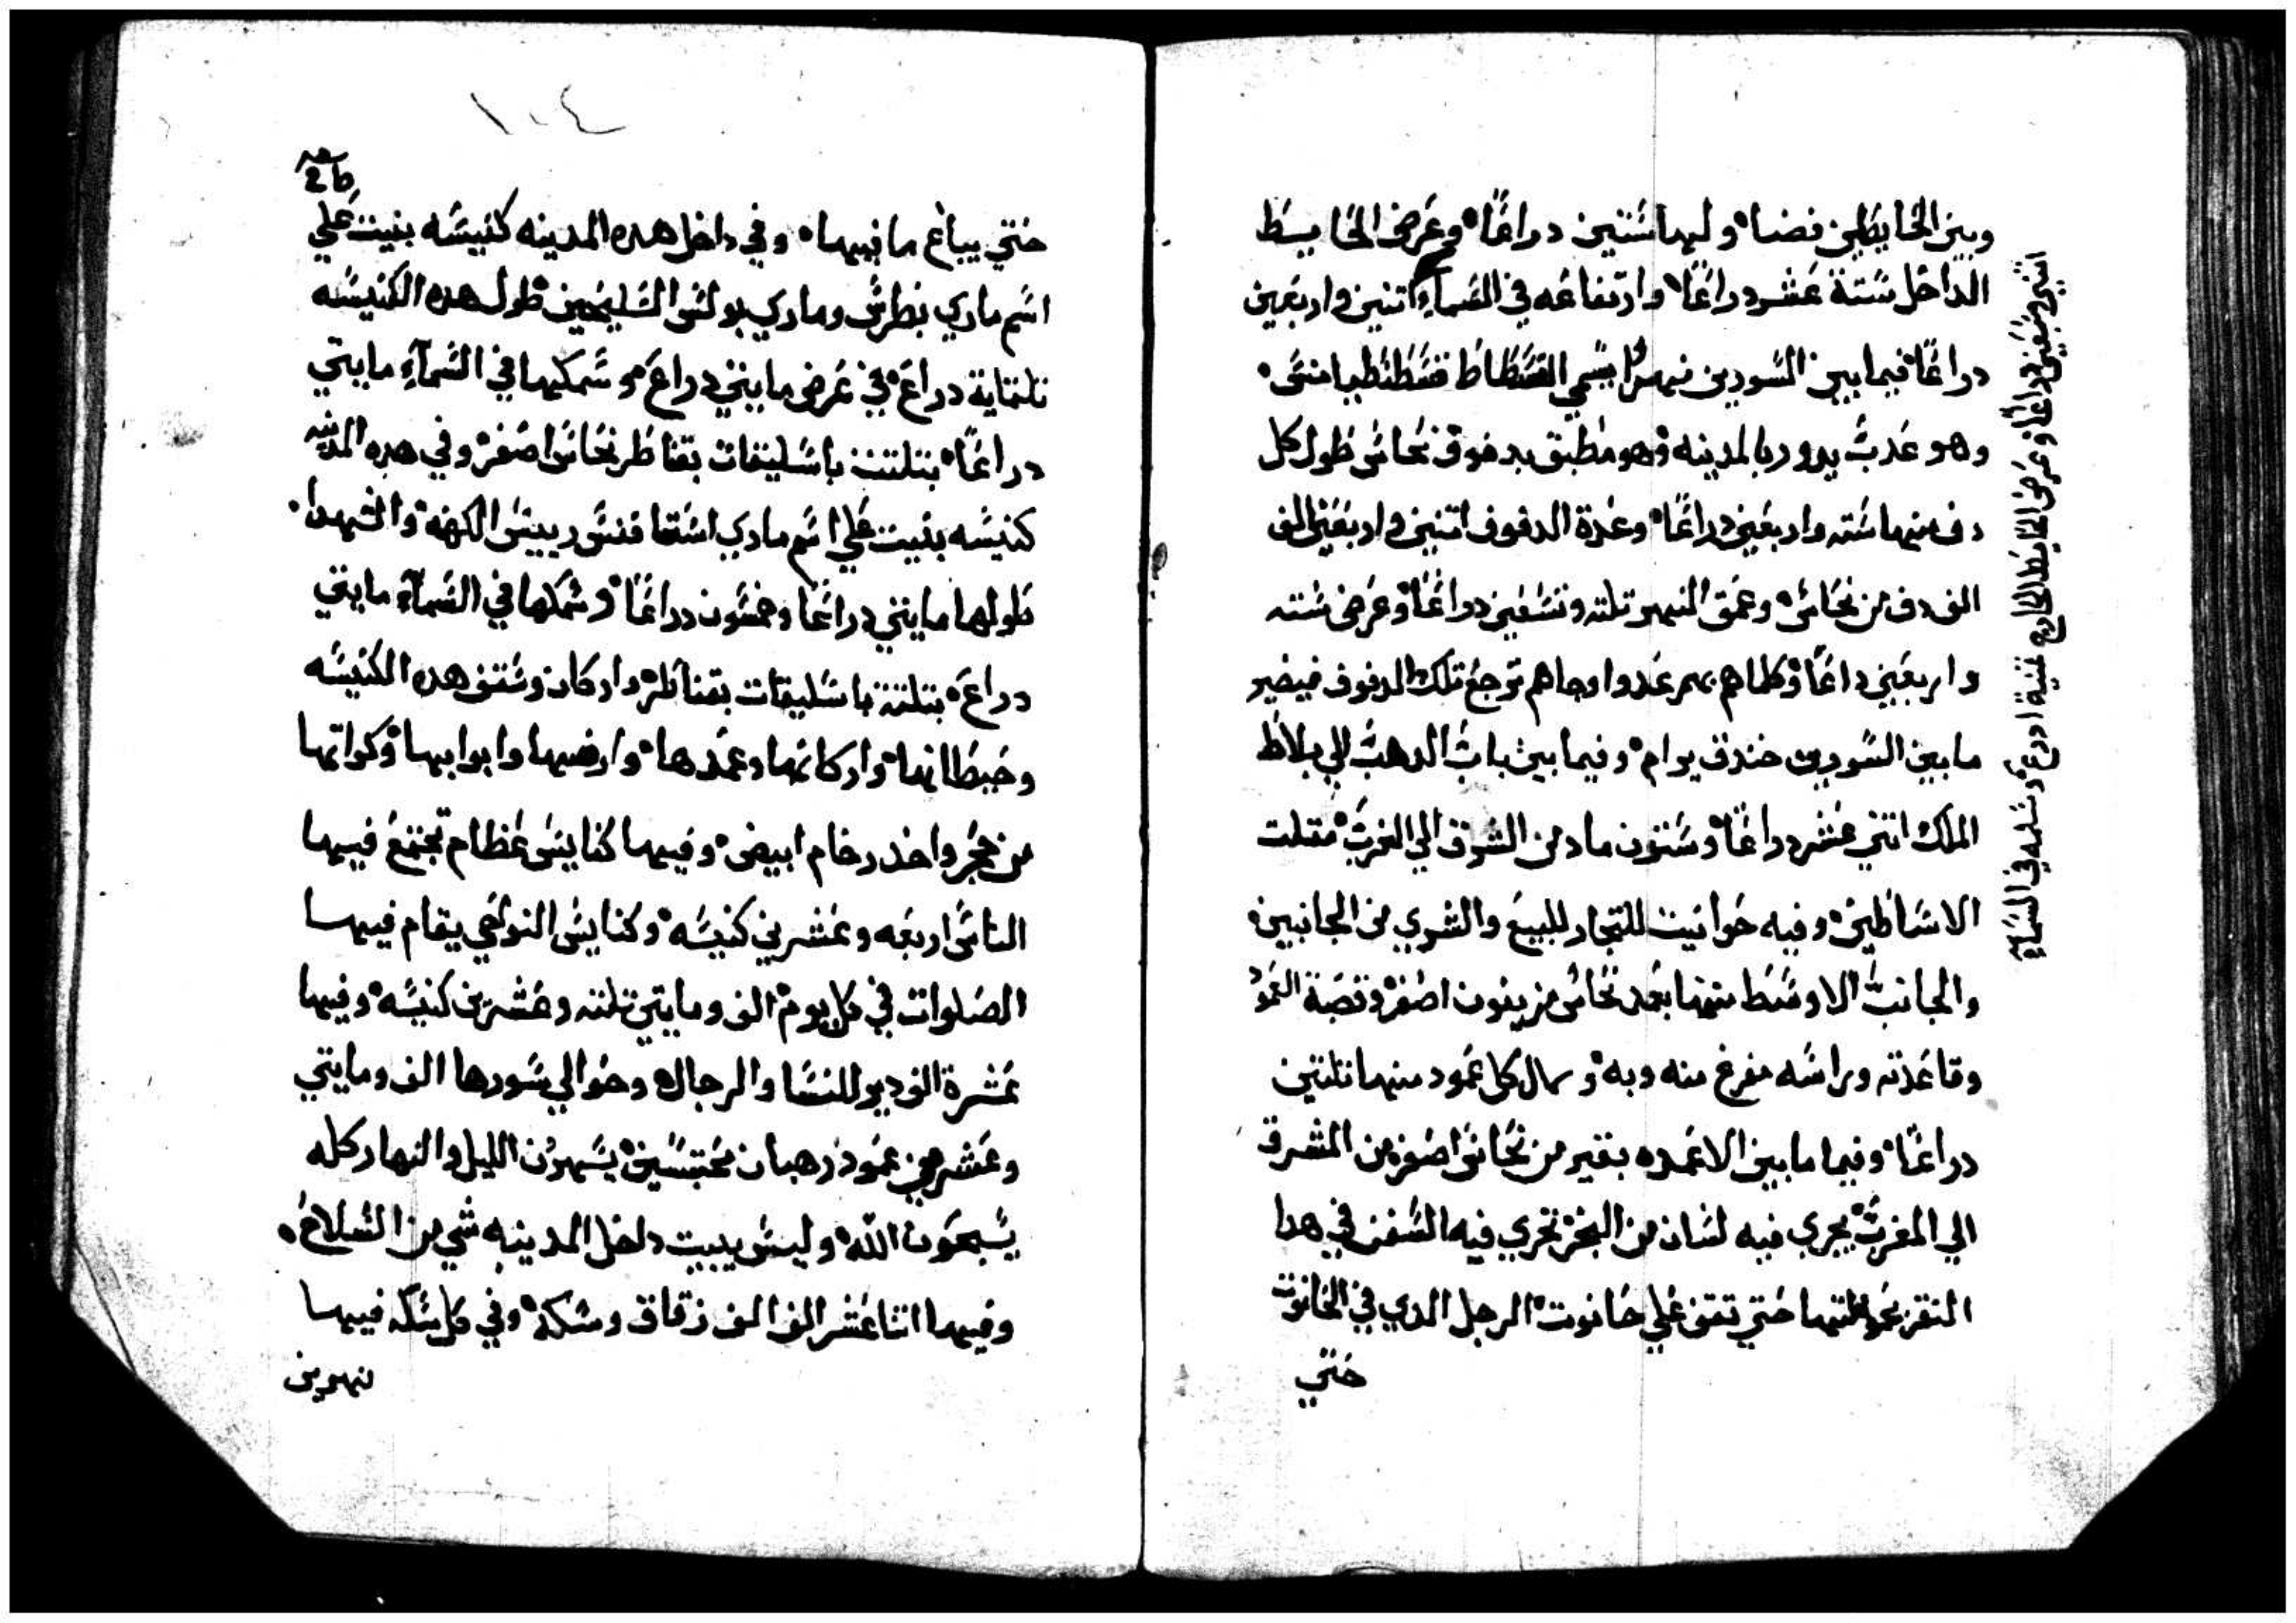 وبين الحايطين فضا ولهما ستين دراعًا وعرض الحايط
الداخل ستة عشر دراعًا وارتفاعه في السمآء اتنين واربعين
دراعًا فيما بين السورين نهرًا يسمي القسطاط قسطنطيامنس
وهو عدب يدور بالمدينه وهو مطبق بدفوف نحاس طول كل
دف منها سته واربعين دراعًا وعدة الدفوف اتنين واربعين الف
الف دف من نحاس وعمق النهر تلته وتسعين دراعًا وعرض سته
واربعين داعًا وكلما هم بهم عدوا وجاهم ترجع تلك الدفوف فيصير
ما بين السورين خندق يوام وفيما بين باب الدهب الي بلاط
الملك اتني عشر دراعًا وستون ماد من الشرق الي الغرب متلت
الاساطين وفيه حوانيت للتجار للبيع والشري من الجانبين
والجانب الاوسط منها بعمد نحاس مزينون اصفر وقصبة العمود
وقاعدته وراسه مفرغ منه وبه وسمك كل عمود منها تلتين
دراعًا وفيما ما بين الاعمده بقير من نحاس اصفر من المشرق
الي المغرب يجري فيه لسان من البحر تجري فيه السفن في هدا
النقر بحمولتها حتي تقف علي حانوت الرجل الدي في الحانوت
حتي
اتنين وسبعين دراعًا وعرض الحايط الخارج تمنية ادرع وسلمه في السمآء
١٠٤
حتي يباع ما فيها وفي داخل هده المدينه كنيسه بنيت علي
اسم ماري بطرس وماري بولس السليحين طول هده الكنيسه
تلتماية دراع في عرض مايتي دراع وسمكها في السمآء مايتي
دراعًا بتلتت باسليقات بقناطر نحاس اصفر وفي هده المدينه
كنيسه بنيت علي اسم ماري اسطافنس رييس الكهنه والشهدا
طولها مايتي دراعًا وخمسون دراعًا وسمكها في السمآء مايتي
دراع بتلتت باسليقات بقناطر واركان وسقف هده الكنيسه
وحيطانها واركانها وعمدها وارضيها وابوابها وكواتها
من حجر واحد رخام ابيض وفيها كنايس عظام تجتمع فيها
الناس اربعه وعشرين كنيسه وكنايس النواحي يقام فيها
الصلوات في كل يوم الف ومايتي تلته وعشرين كنيسه وفيها
عشرة الف دير للنسا والرجال وحوالي سورها الف ومايتي
وعشرين عمود رهبان محتبسين يسهرون الليل والنهار كله
يسبحون الله وليس يبيت داخل المدينه شي من السلاح
وفيها اتنا عشر الف الف زقاق وسكه وفي كل سكه فيها
نهرين